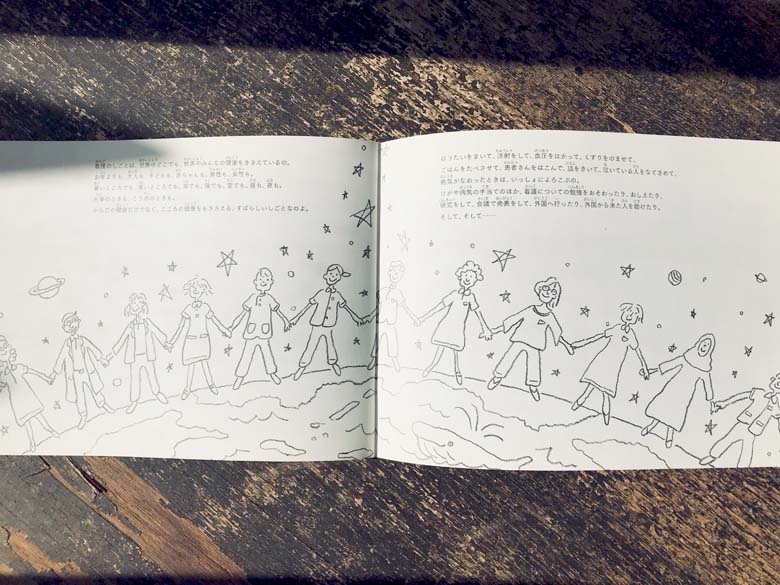 看護のしごとは、世界中どこでも、世界中みんなの健康をささえているの。
お年よりも、大人も、子どもも、赤ちゃんも。男性も、女性も。
暑いところでも、寒いところでも。海でも、陸でも、空でも。昼も、夜も。
大事のときも、こう水のときも。
からだの健康だけでなく、こころの健康をもささえる、すばらしいしごとなのよ。
ほうたいをまいて、注射をして、血圧をはかって、くすりをのませて、
ごはんをたべさせて、患者さんをはこんで、話をきいて、泣いている人をなぐさめて、
病気がなおったときは、いっしょによろこぶの。
けがや病気の手当てのほか、看護についての勉強をおそわったり、おしえたり、
研究をして、会議で発表をして、外国へ行ったり、外国から来た人を助けたり。
そして、そして……